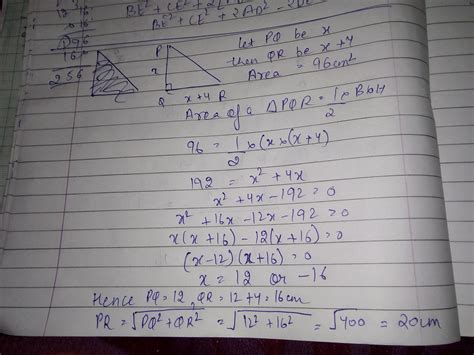 16
196
256
BE² + CE² +
BE² + CE² + 2AD²
P
x
Q x+4 R
let PQ be x
then QR be x+4
Area = 96cm²
Area of a △PQR = 1/2 × B × H
96 = 1/2 × (x × (x+4)
192 = x² + 4x
x² + 4x - 192 = 0
x² + 16x - 12x - 192 = 0
x(x+16) - 12(x+16) = 0
(x-12)(x+16) = 0
x = 12 or -16
Hence PQ = 12, QR = 12 + 4 = 16cm
PR = √PQ² + QR² = √12² + 16² = √400 = 20cm